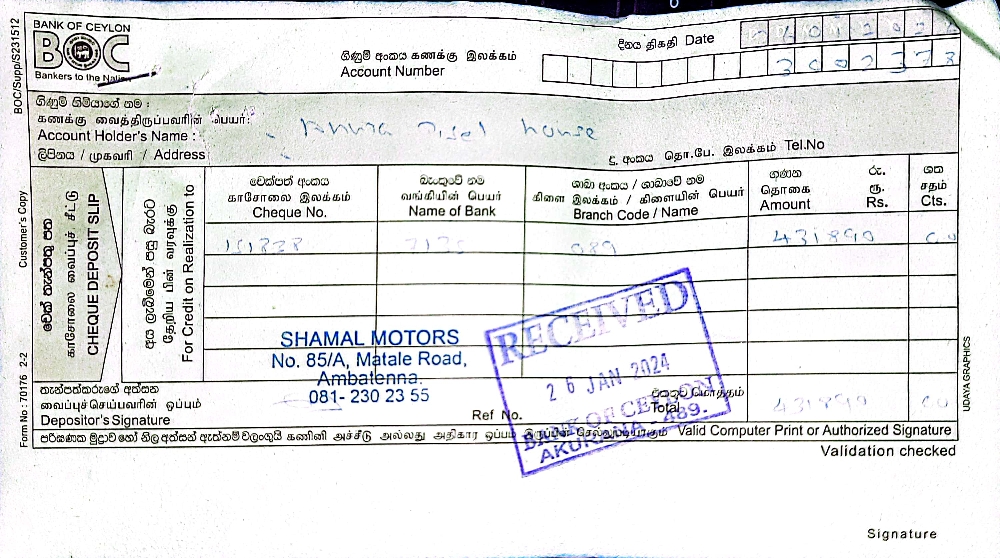 BOC/Supp/S231512
BANK OF CEYLON
BOC
Bankers to the Nation
දිනය திகதி Date
ගිණුම් අංකය கணக்கு இலக்கம்
Account Number
3002378
ගිණුම් හිමියාගේ නම :
கணக்கு வைத்திருப்பவரின் பெயர்:
Account Holder's Name :
house
ලිපිනය / முகவரி / Address
දු. අංකය தொ.பே. இலக்கம் Tel.No
Customer's Copy
Form No : 70176 2-2
චෙක් තැන්පතු පත
காசோலை வைப்புச் சீட்டு
CHEQUE DEPOSIT SLIP
අය ලැබීමෙන් පසු බැරට
தேறிய பின் வரவுக்கு
For Credit on Realization to
චෙක්පත් අංකය
காசோலை இலக்கம்
Cheque No.
බැංකුවේ නම
வங்கியின் பெயர்
Name of Bank
ශාඛා අංකය / ශාඛාවේ නම
கிளை இலக்கம் / கிளையின் பெயர்
Branch Code / Name
ගණන
தொகை
Amount
රු.
ரூ.
Rs.
ශත
சதம்
Cts.
089
431890
00
SHAMAL MOTORS
No. 85/A, Matale Road,
Ambatenna.
081- 230 23 55
RECEIVED
26 JAN 2024
BANK OF CEYLON
AKURANA - 489.
තැන්පත්කරුගේ අත්සන
வைப்புச்செய்பவரின் ஒப்பம்
Depositor's Signature
Ref No.
එකතුව மொத்தம்
Total
431890
00
පරිගණක මුද්‍රාව හෝ නිල අත්සන ඇත්නම් වලංගුයි கணினி அச்சீடு அல்லது அதிகார ஒப்பம் இருப்பின் செல்லுபடியாகும் Valid Computer Print or Authorized Signature
Validation checked
Signature
UDAYA GRAPHICS